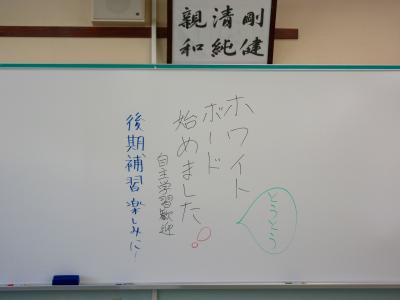 剛健
清純
親和
ホワイト
ボード
始めました!
自主学習歓迎
後期補習楽しみに!
とうとう